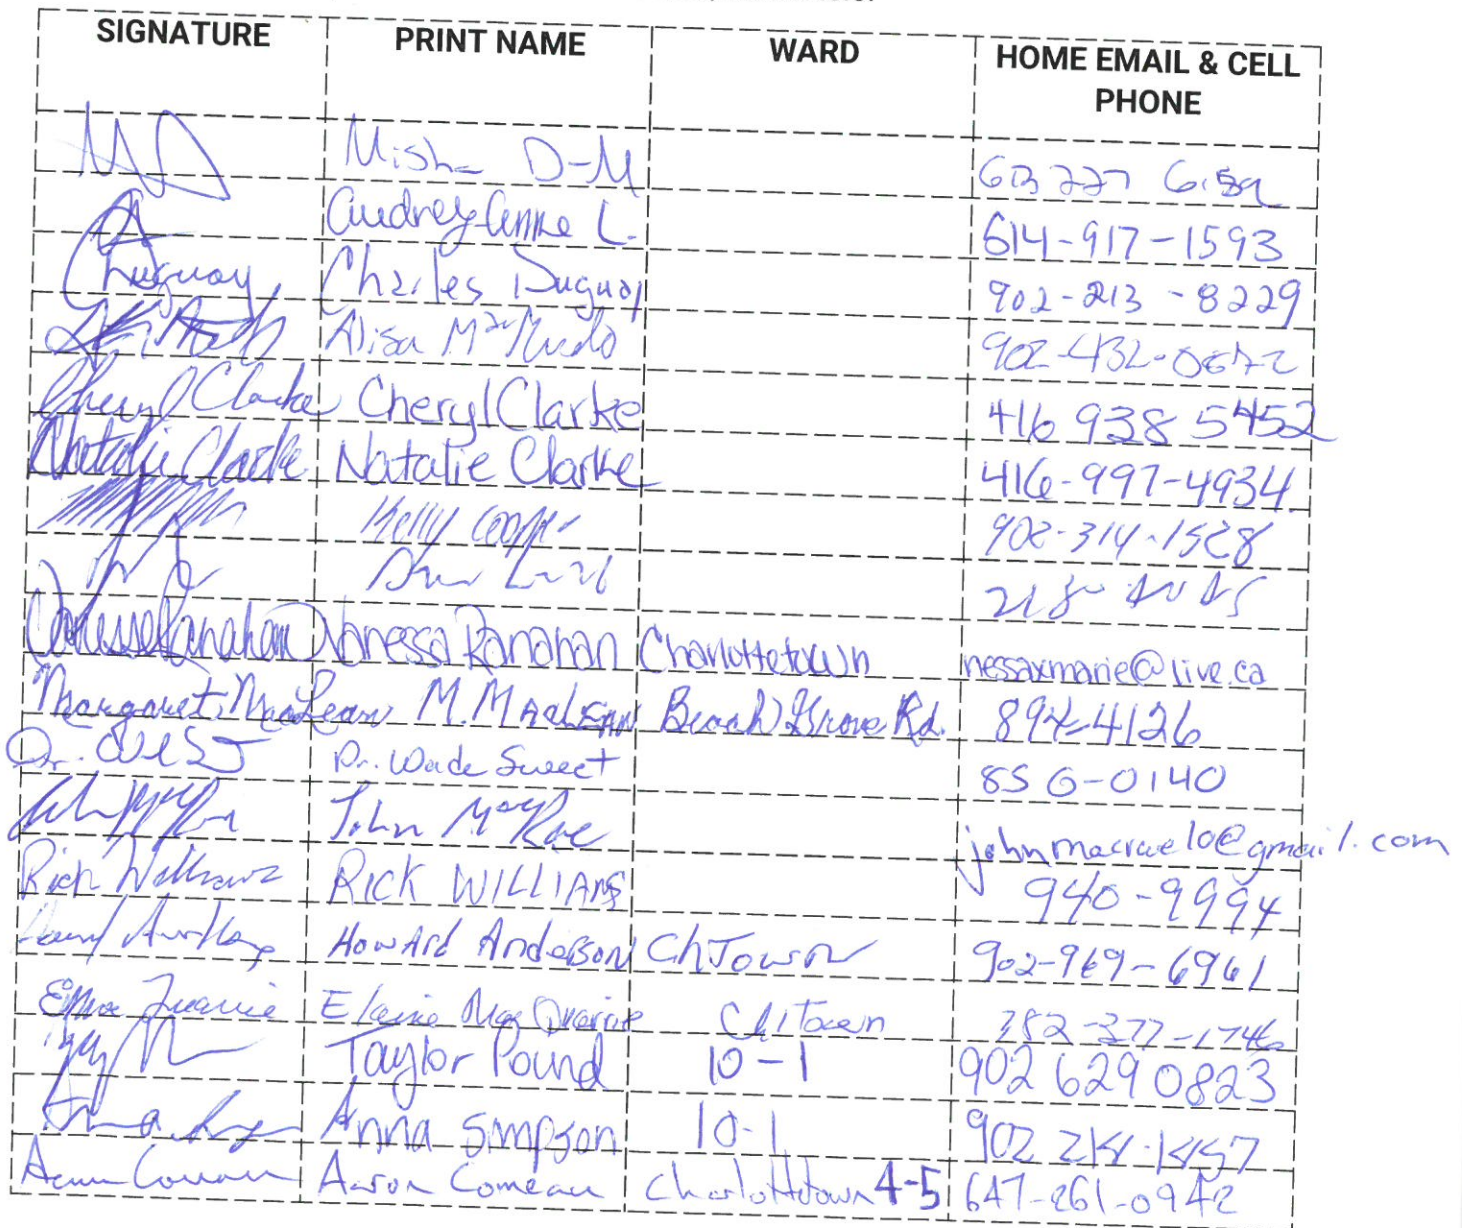 SIGNATURE PRINT NAME WARD HOME EMAIL & CELL
PHONE
Misha D-M
Audrey-Anne L. 614-917-1593
Charles Duguay 902-213-8229
Alisa 902-432-
Cheryl Clarke Cheryl Clarke 416 938 5452
Natalie Clarke Natalie Clarke 416-997-4934
Kelly Cooper 902-314-1528
Vanessa Ranahan Vanessa Ranahan Charlottetown nessaxmarie@live.ca
Margaret MacLean M. MacLEAN Beach Grove Rd. 894-4126
Dr. Dr. Wade Sweet 856-0140
John MacRae johnmacrae10@gmail.com
Rick Williams RICK WILLIAMS 940-9994
HowArd Anderson ChTown 902-969-6961
Elaine MacQuarrie ChTown 352-377-1746
Taylor Pound 10-1 902 629 0823
Anna Simpson 10-1 902
Aaron Comeau Aaron Comeau Charlottetown 4-5 647-261-0942